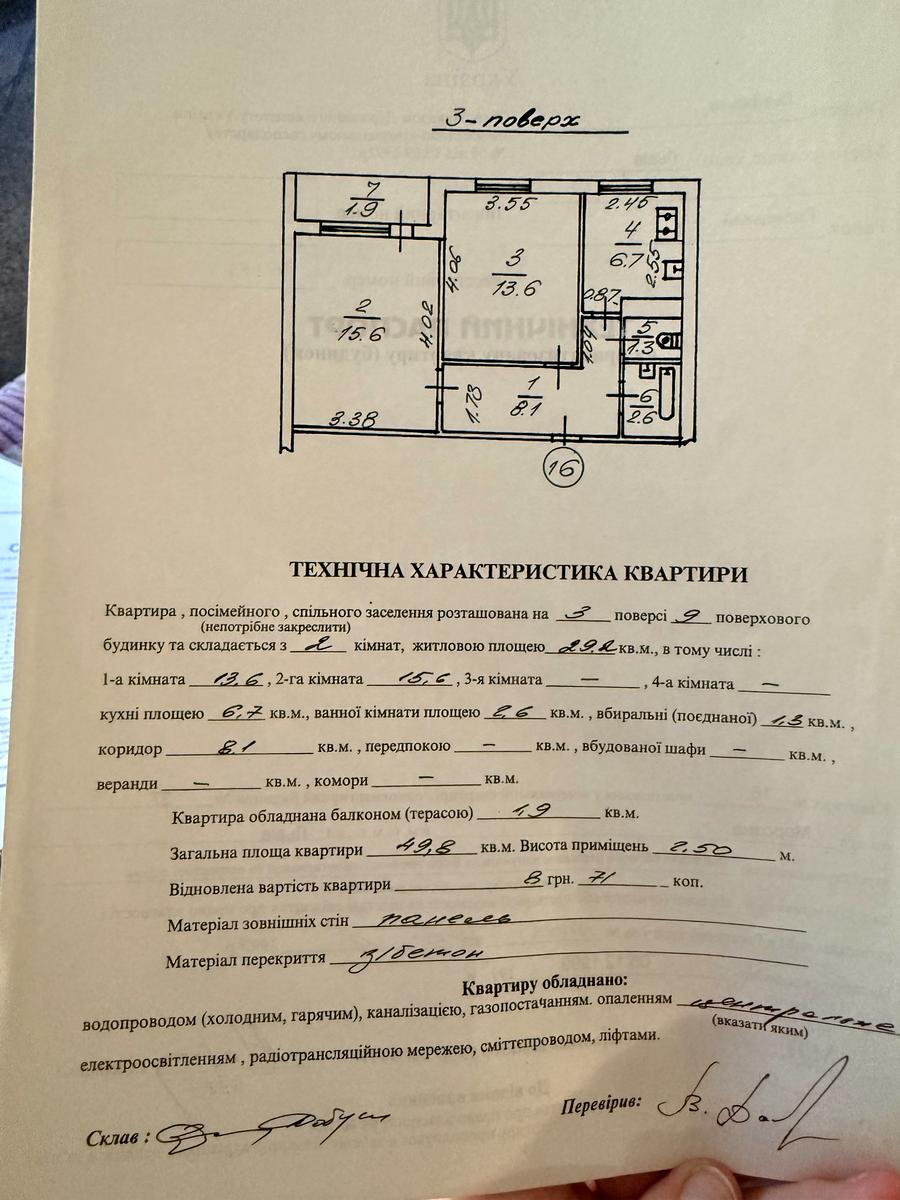 3- поверх
7
1.9
3.55
2.45
4
6.7
2.55
4.06
3
13.6
2
15.6
4.02
0.87
1.04
5
1.3
1
8.1
1.73
6
2.6
3.38
16
ТЕХНІЧНА ХАРАКТЕРИСТИКА КВАРТИРИ
Квартира , посімейного , спільного заселення розташована на 3 поверсі 9 поверхового
(непотрібне закреслити)
будинку та складається з 2 кімнат, житловою площею 29.2 кв.м., в тому числі :
1-а кімната 13,6 , 2-га кімната 15,6 , 3-я кімната — , 4-а кімната —
кухні площею 6,7 кв.м., ванної кімнати площею 2,6 кв.м. , вбиральні (поєднаної) 1,3 кв.м. ,
коридор 8.1 кв.м. , передпокою — кв.м. , вбудованої шафи — кв.м. ,
веранди — кв.м. , комори — кв.м.
Квартира обладнана балконом (терасою) 1,9 кв.м.
Загальна площа квартири 49,8 кв.м. Висота приміщень 2.50 м.
Відновлена вартість квартири 8 грн. 71 коп.
Матеріал зовнішніх стін панель
Матеріал перекриття з/бетон
Квартиру обладнано:
водопроводом (холодним, гарячим), каналізацією, газопостачанням. опаленням центральне
(вказати яким)
електроосвітленням , радіотрансляційною мережею, сміттєпроводом, ліфтами.
Склав :
Перевірив: